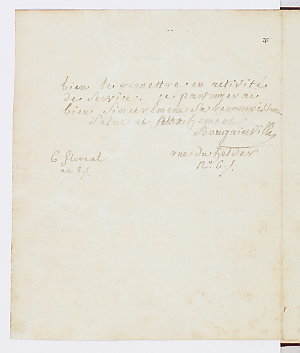 bien le remettre en activité
de service. je partagerai
bien sincerement sa reconnoissance
Salut et attachement
Bougainville
6 floreal
an 8
rue du helder
N° 6